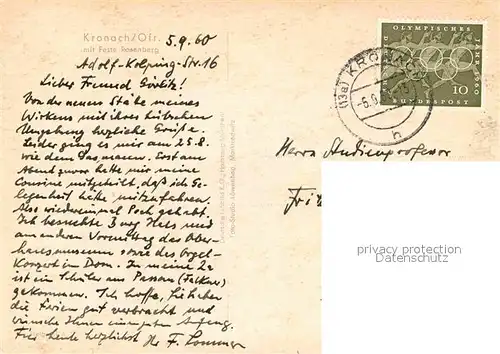 Kronach/Ofr.
mit Feste Rosenberg
5.9.60
Adolf-Kolping-Str. 16
Lieber Freund Görlitz!
Von der neuen Stätte meines
Wirkens mit ihrer hübschen
Umgebung herzliche Grüße.
Leider ging es mir am 25.8.
wie dem Erst am
Abend zuvor hatte mir meine
Cousine mitgeteilt, daß ich Ge-
legenheit hätte mitzufahren.
Also wiedereinmal Pech gehabt.
Ich besuchte Burg Hals und
am andern Vormittag das Ober-
hausmuseum sowie das Orgel-
Konzert im Dom. In meine 2a
ist ein Schüler aus Passau (Falkner)
gekommen. Ich hoffe, Sie haben
die Ferien gut verbracht und
wünsche Ihnen einen guten Anfang.
Für heute herzlichst Ihr F. Sommer
OLYMPISCHES JAHR 1960
10
DEUTSCHE BUNDESPOST
(13a) KRONACH
-6.9.
h
Herrn Studienprofessor
Fri
privacy protection
watermark